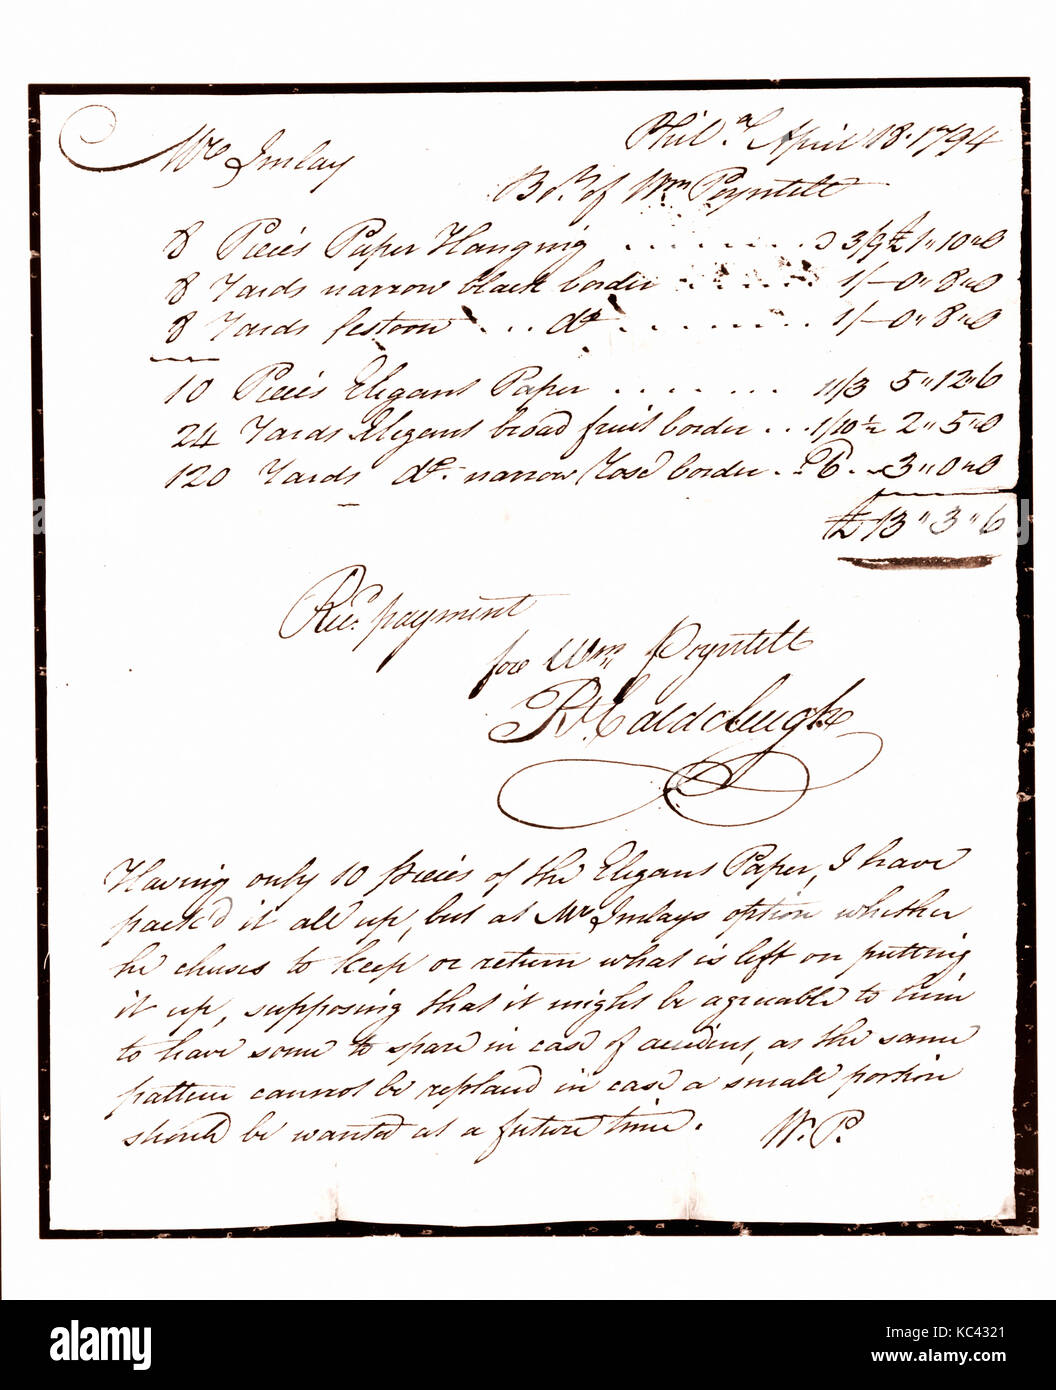 Phil.ª April 18. 1794
Mr Imlay
Bo.t of Wm Poyntell
8 Pieces Paper Hanging . . . . . . . 3/9 £1 " 10 " 0
8 Yards narrow black border . . . . . . 1/— 0 " 8 " 0
8 Yards festoon . . . do . . . . . . . 1/— 0 " 8 " 0
10 Pieces Elegant Paper . . . . . . . 11/3 5 " 12 " 6
24 Yards Elegant broad fruit border . . . 1/10½ 2 " 5 " 0
120 Yards do. narrow rose border . 6 . 3 " 0 " 0
£13 " 3 " 6
Rec.d payment
for Wm Poyntell
R Caldcleugh
Having only 10 pieces of the Elegant Paper, I have
pack'd it all up, but at Mr Imlays option whether
he chuses to keep or return what is left on putting
it up, supposing that it might be agreeable to him
to have some to spare in case of accident, as the same
pattern cannot be replaced in case a small portion
should be wanted at a future time. W. P.
alamy stock photo
KC4321
www.alamy.com